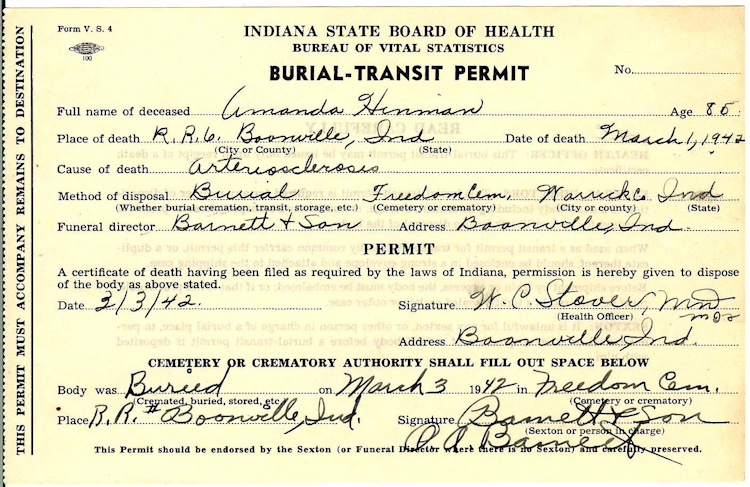 Form V. S. 4
100
INDIANA STATE BOARD OF HEALTH
BUREAU OF VITAL STATISTICS
BURIAL-TRANSIT PERMIT
No.
Full name of deceased Amanda Hinman Age 85
Place of death R.R. 6. Boonville, Ind Date of death March 1, 1942
(City or County) (State)
Cause of death arteriosclerosis
Method of disposal Burial Freedom Cem. Warrick Co Ind
(Whether burial cremation, transit, storage, etc.) (Cemetery or crematory) (City or county) (State)
Funeral director Barnett & Son Address Boonville, Ind.
PERMIT
A certificate of death having been filed as required by the laws of Indiana, permission is hereby given to dispose
of the body as above stated.
Date 3/3/42. Signature W. C. Stover,
(Health Officer)
Address Boonville, Ind.
CEMETERY OR CREMATORY AUTHORITY SHALL FILL OUT SPACE BELOW
Body was Buried on March 3 1942 in Freedom Cem.
(Cremated, buried, stored, etc.) (Cemetery or crematory)
Place R.R.# Boonville, Ind. Signature Barnett & Son
(Sexton or person in charge)
Barnett
This Permit should be endorsed by the Sexton (or Funeral Director where there is no Sexton) and carefully preserved.
THIS PERMIT MUST ACCOMPANY REMAINS TO DESTINATION